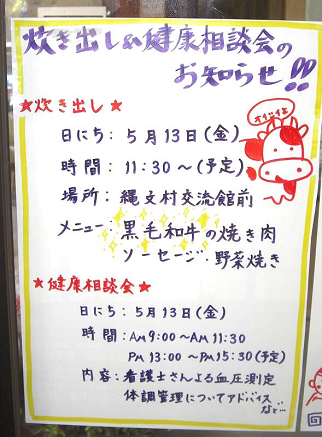 炊き出し&健康相談会の
お知らせ!!
★炊き出し★
オイシイよ
日にち: 5月13日(金)
時間: 11:30〜(予定)
場所: 縄文村交流館前
メニュー: 黒毛和牛の焼き肉
ソーセージ・野菜焼き
★健康相談会★
日にち: 5月13日(金)
時間: AM9:00〜AM11:30
PM13:00〜PM15:30(予定)
内容: 看護士さんよる血圧測定
体調管理についてアドバイス
など…